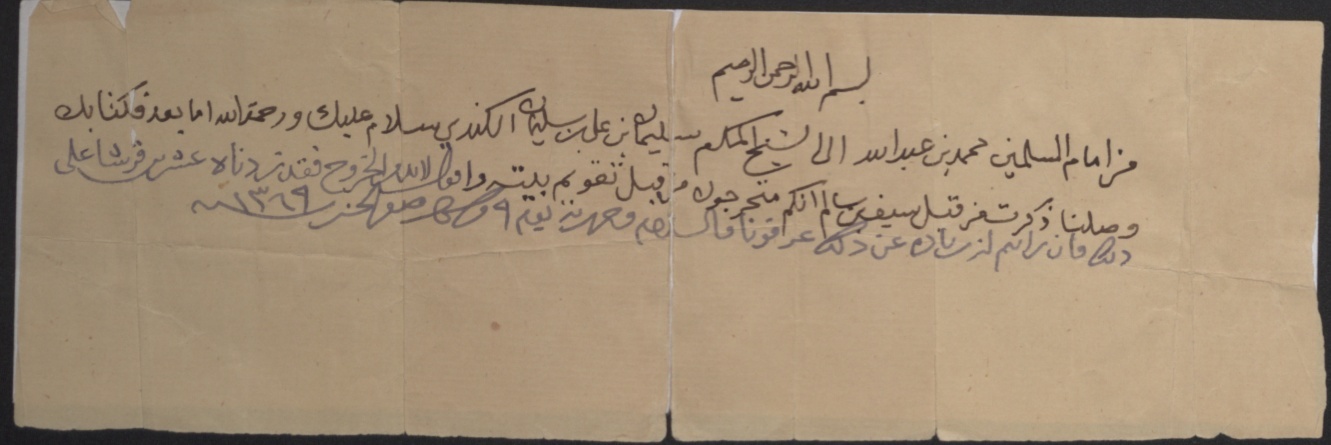 بسم الله الرحمن الرحيم
من امام المسلمين محمد بن عبدالله الى الشيخ المكرم سليمان بن علي بن سليمان الكندي سلام عليك ورحمة الله اما بعد فكتابك
وصلنا ذكرت من قبل سيف بن سالم انكم متحرجون من قبل تقويم بيته الخروج فقد زدناه عشرين قرشا على
ذلك فان رايتم الزيادة عن ذلك عرفونا والسلام يوم ٩ ١٣٦٩